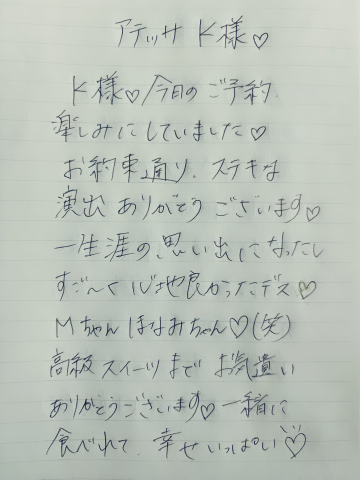 アテッサ K様♡
K様♡今日のご予約、
楽しみにしていました♡
お約束通り、ステキな
演出ありがとうございます♡
一生涯の思い出になったし
すご〜く心地良かったデス♡
Mちゃんほなみちゃん♡(笑)
高級スイーツまで お気遣い
ありがとうございます♡一緒に
食べれて、幸せいっぱい♡